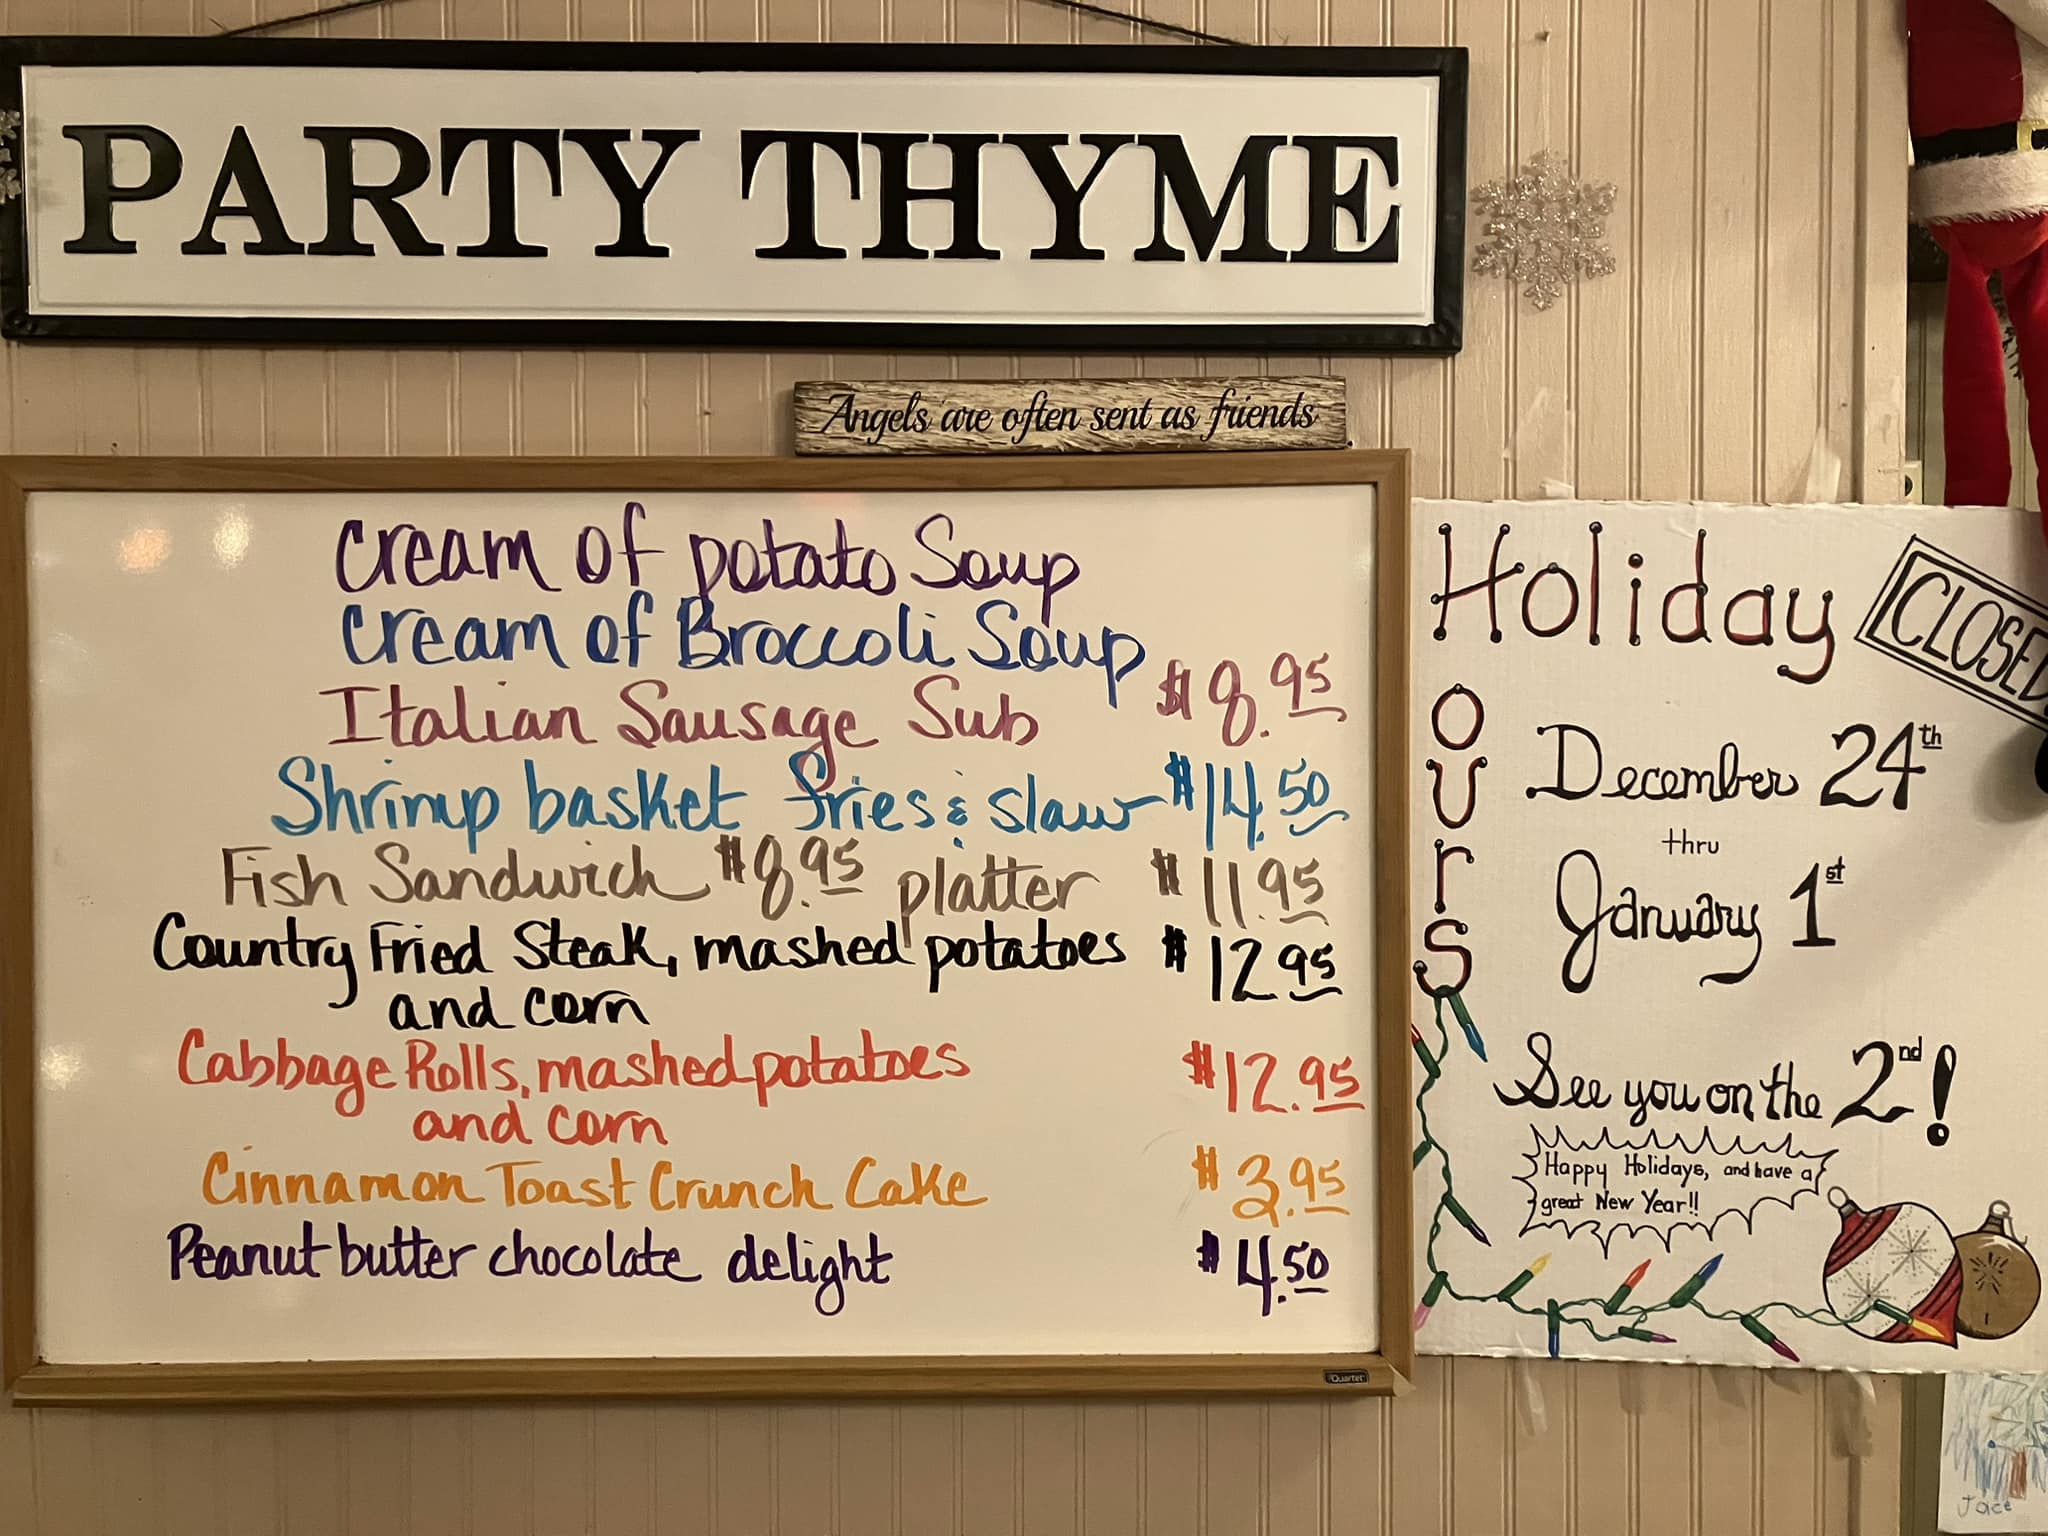 PARTY THYME
Angels are often sent as friends
Cream of potato Soup
Cream of Broccoli Soup
Italian Sausage Sub $8.95
Shrimp basket fries & slaw $14.50
Fish Sandwich $8.95 platter $11.95
Country Fried Steak, mashed potatoes $12.95
and corn
Cabbage Rolls, mashed potatoes $12.95
and corn
Cinnamon Toast Crunch Cake $3.95
Peanut butter chocolate delight $4.50
Quartet
Holiday
Hours
CLOSED
December 24th
thru
January 1st
See you on the 2nd!
Happy Holidays, and have a
great New Year!!
Jace